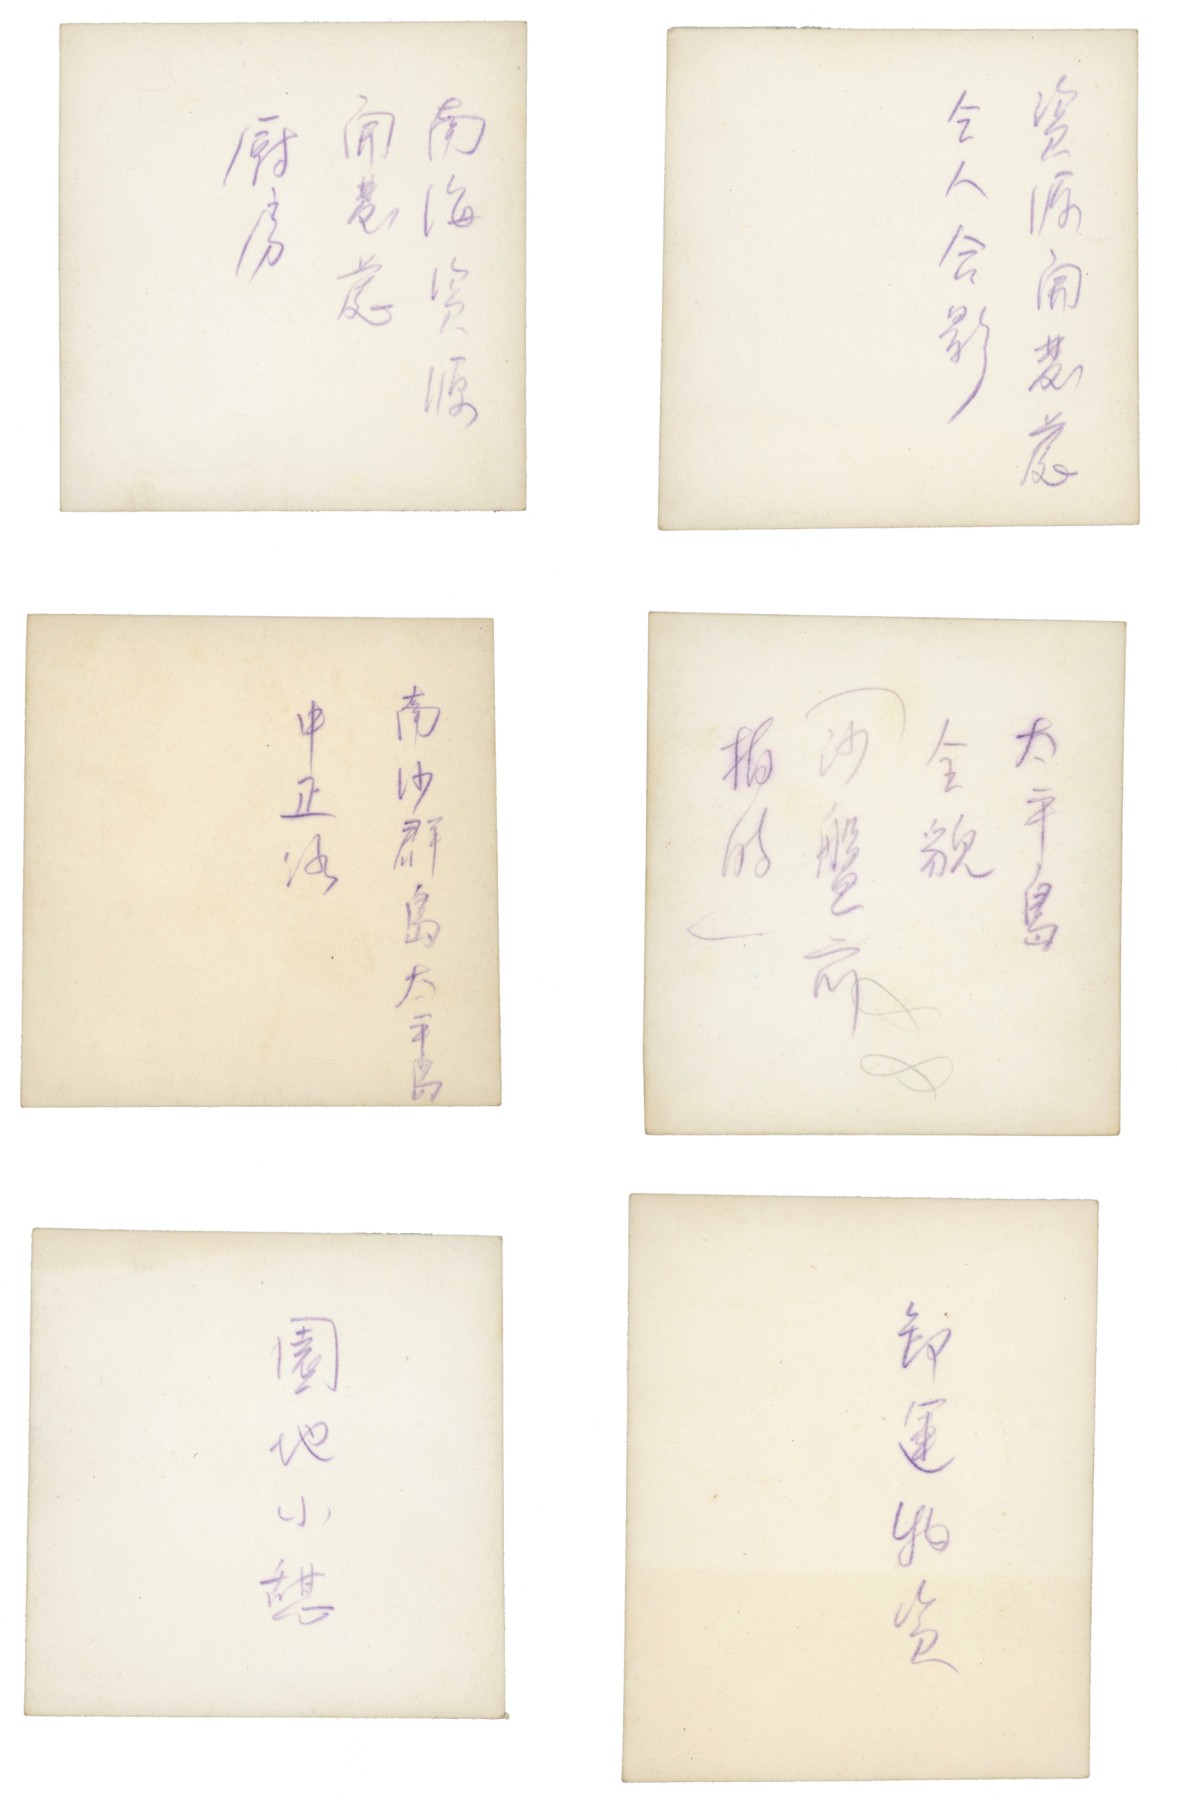 南海資源
開發處
廚房
資源開發處
仝人合影
南沙群島太平島
中正路
太平島
全貌
(沙盤前
拍的)
園地小憩
卸運物資